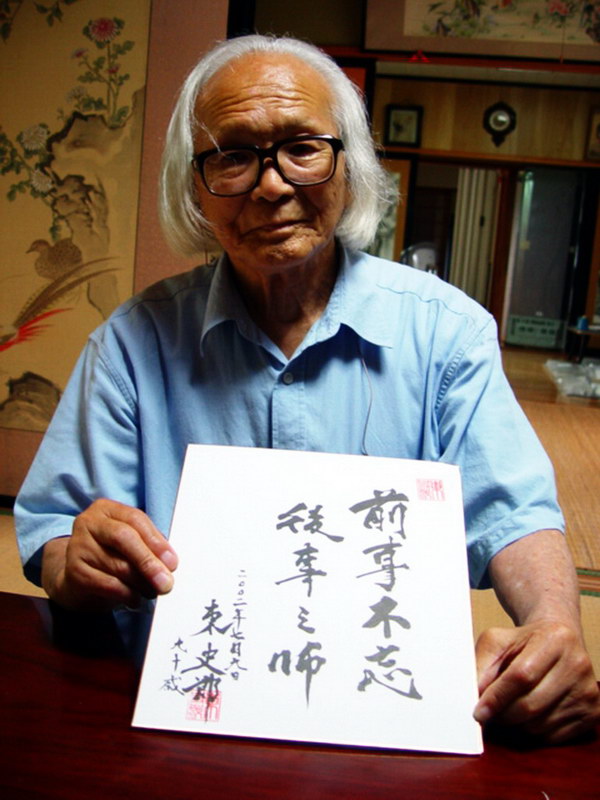 前事不忘
後事之師
二〇〇二年七月九日
東史郎
九十歳